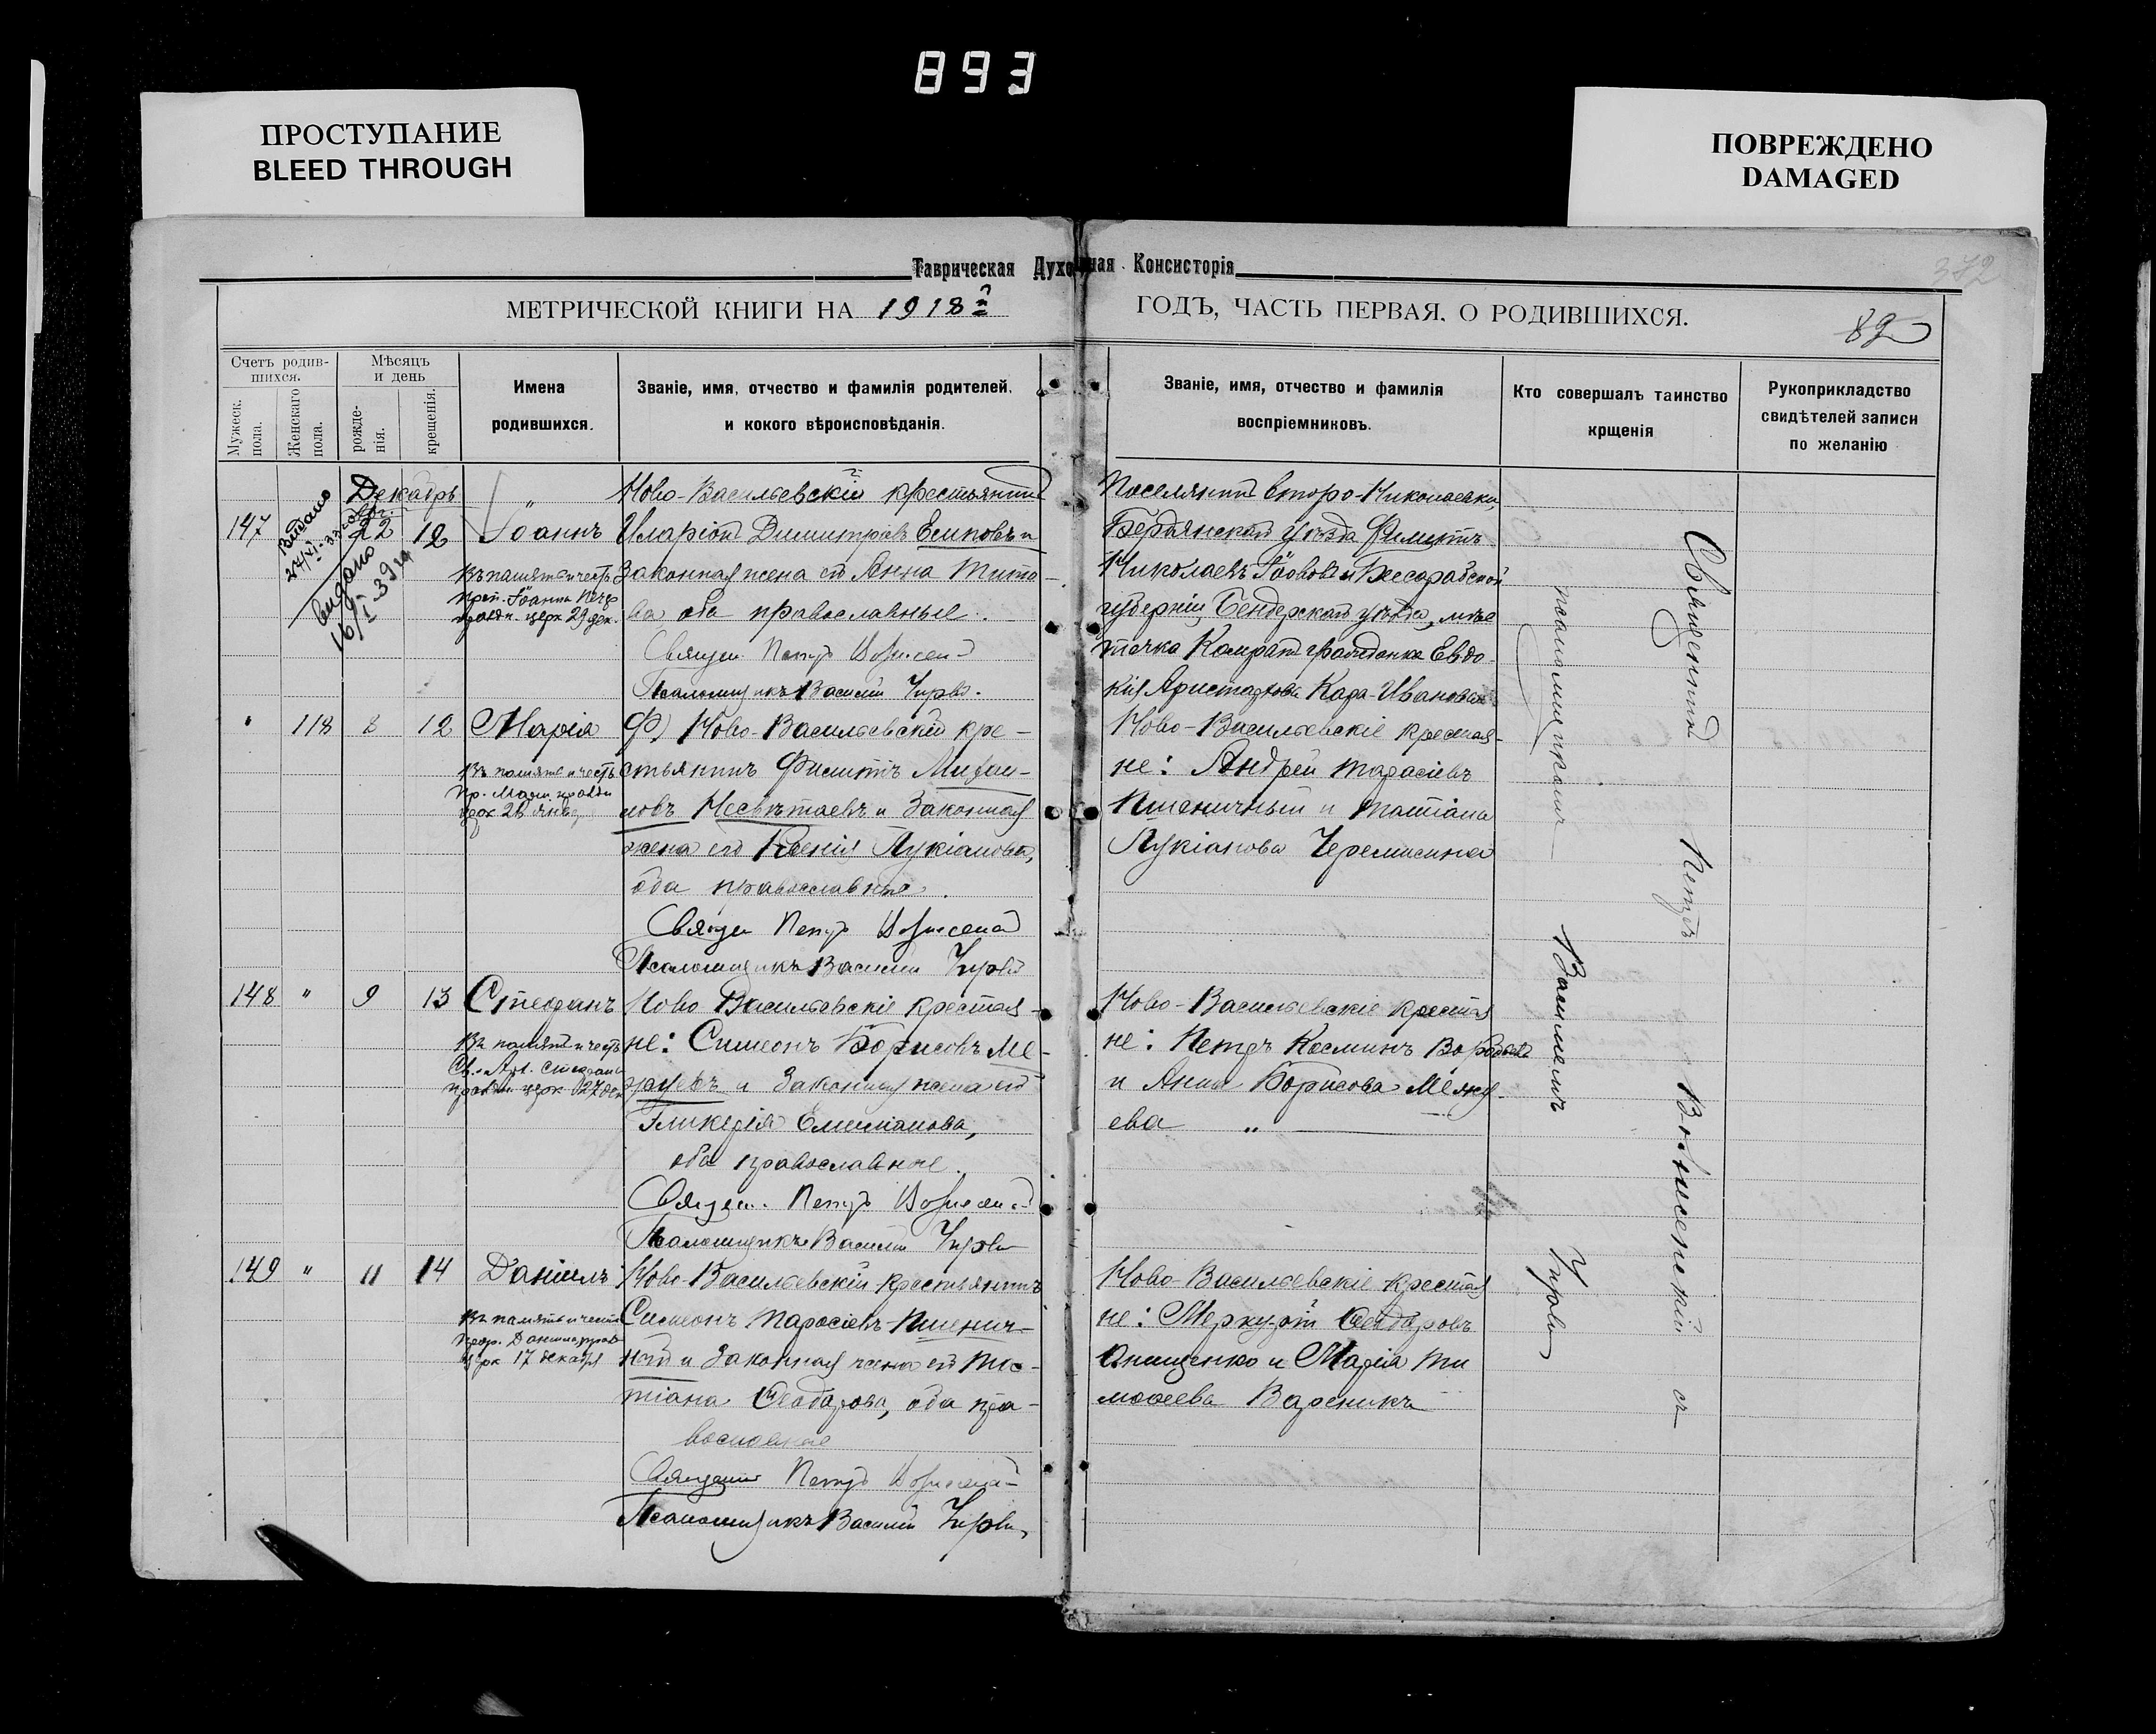 893
ПРОСТУПАНИЕ
BLEED THROUGH
ПОВРЕЖДЕНО
DAMAGED
Таврическая Духовная Консисторія
372
МЕТРИЧЕСКОЙ КНИГИ НА 1918й ГОДЪ, ЧАСТЬ ПЕРВАЯ, О РОДИВШИХСЯ.
89
Счетъ родив-
шихся.
Мужеск. пола.
Женскаго пола.
Мѣсяцъ
и день
рожде-
нія.
крещенія.
Имена
родившихся.
Званіе, имя, отчество и фамилія родителей,
и кокого вѣроисповѣданія.
Званіе, имя, отчество и фамилія
воспріемниковъ.
Кто совершалъ таинство
крщенія
Рукоприкладство
свидѣтелей записи
по желанію
Декабрь
147 22 12 Іоаннъ
Выдано
выдано
Въ память и честь
Іоанна
церк 29 дек.
Ново-Васильевскій крестьянинъ
Иларіонъ Димитріевъ Есиповъ и
Законная жена его Анна Тито-
ва оба православные.
Священ Петръ
Псаломщикъ Василій Чирво.
Поселянинъ второ-Николаевки,
Бердянскаго уѣзда Филиппъ
Николаевъ и Бессарабской
губерніи, Бендерскаго уѣзда, мѣс
течка Комратъ гражданка Евдо-
кія Аристархова Кара-Иванова
118 8 12 Марія
Въ память и честь
Пр. Маріи праздн
церк 26 янв,
Ново-Васильевскій кре-
стьянинъ Филиппъ Михаи-
ловъ Несвѣтаевъ и Законная
жена его Ксенія Лукіанова,
оба православные.
Священ Петръ
Псаломщикъ Василій Чирво
Ново-Васильевскіе крестья-
не: Андрей Тарасіевъ
Пшеничный и Татіана
Лукіанова Черемисина
148 " 9 13 Стефанъ
Въ память и честь
Св. Ап. Стефана
праздн церк 27 дек
Ново Васильевскіе крестья-
не: Симеонъ Борисовъ Ме-
жуевъ и Законная жена его
Гликерія Емиліанова,
оба православные.
Священ. Петръ
Псаломщикъ Василій Чирво
Ново-Васильевскіе крестья
не: Петръ Косминъ
и Анна Борисова Межу-
ева "
149 " 11 14 Даніилъ
Въ память и честь
Прор. Даніила празд
церк 17 декабря
Ново-Васильевскій крестьянинъ
Симеонъ Тарасіевъ Пшенич-
ный и Законная жена его Та-
тіана Ѳеодорова, оба пра-
вославные
Священникъ Петръ
Псаломщикъ Василій Чирво,
Ново-Васильевскіе крестья
не: Меркурій Ѳеодоровъ
Онищенко и Марія Ти
моѳеева Вареникъ
Священникъ Петръ Вознесенскій съ
псаломщикомъ Василіемъ Чирво